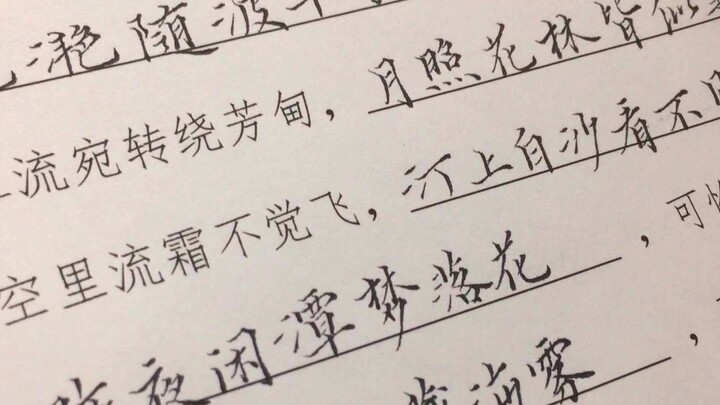 滟随波千
流宛转绕芳甸，月照花林皆似
空里流霜不觉飞，汀上白沙看不
昨夜闲潭梦落花，可怜
海雾，